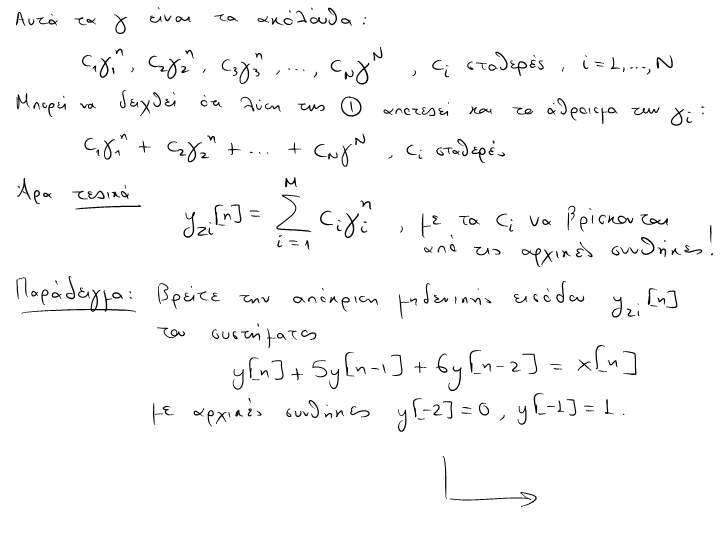 Αυτά τα γ είναι τα ακόλουθα:
C₁γ₁ⁿ, C₂γ₂ⁿ, C₃γ₃ⁿ, ..., C_Nγ^N, C_i σταθερές, i=1,...,N
Μπορεί να δειχθεί ότι λύση της ① αποτελεί και το άθροισμα των γ_i:
C₁γ₁ⁿ + C₂γ₂ⁿ + ... + C_Nγ^N, C_i σταθερές
Άρα τελικά y_{zi}[n] = \sum_{i=1}^{M} C_iγ_iⁿ, με τα C_i να βρίσκονται
από τις αρχικές συνθήκες!
Παράδειγμα: Βρείτε την απόκριση μηδενικής εισόδου y_{zi}[n]
του συστήματος
y[n] + 5y[n-1] + 6y[n-2] = x[n]
με αρχικές συνθήκες y[-2]=0, y[-1]=1.